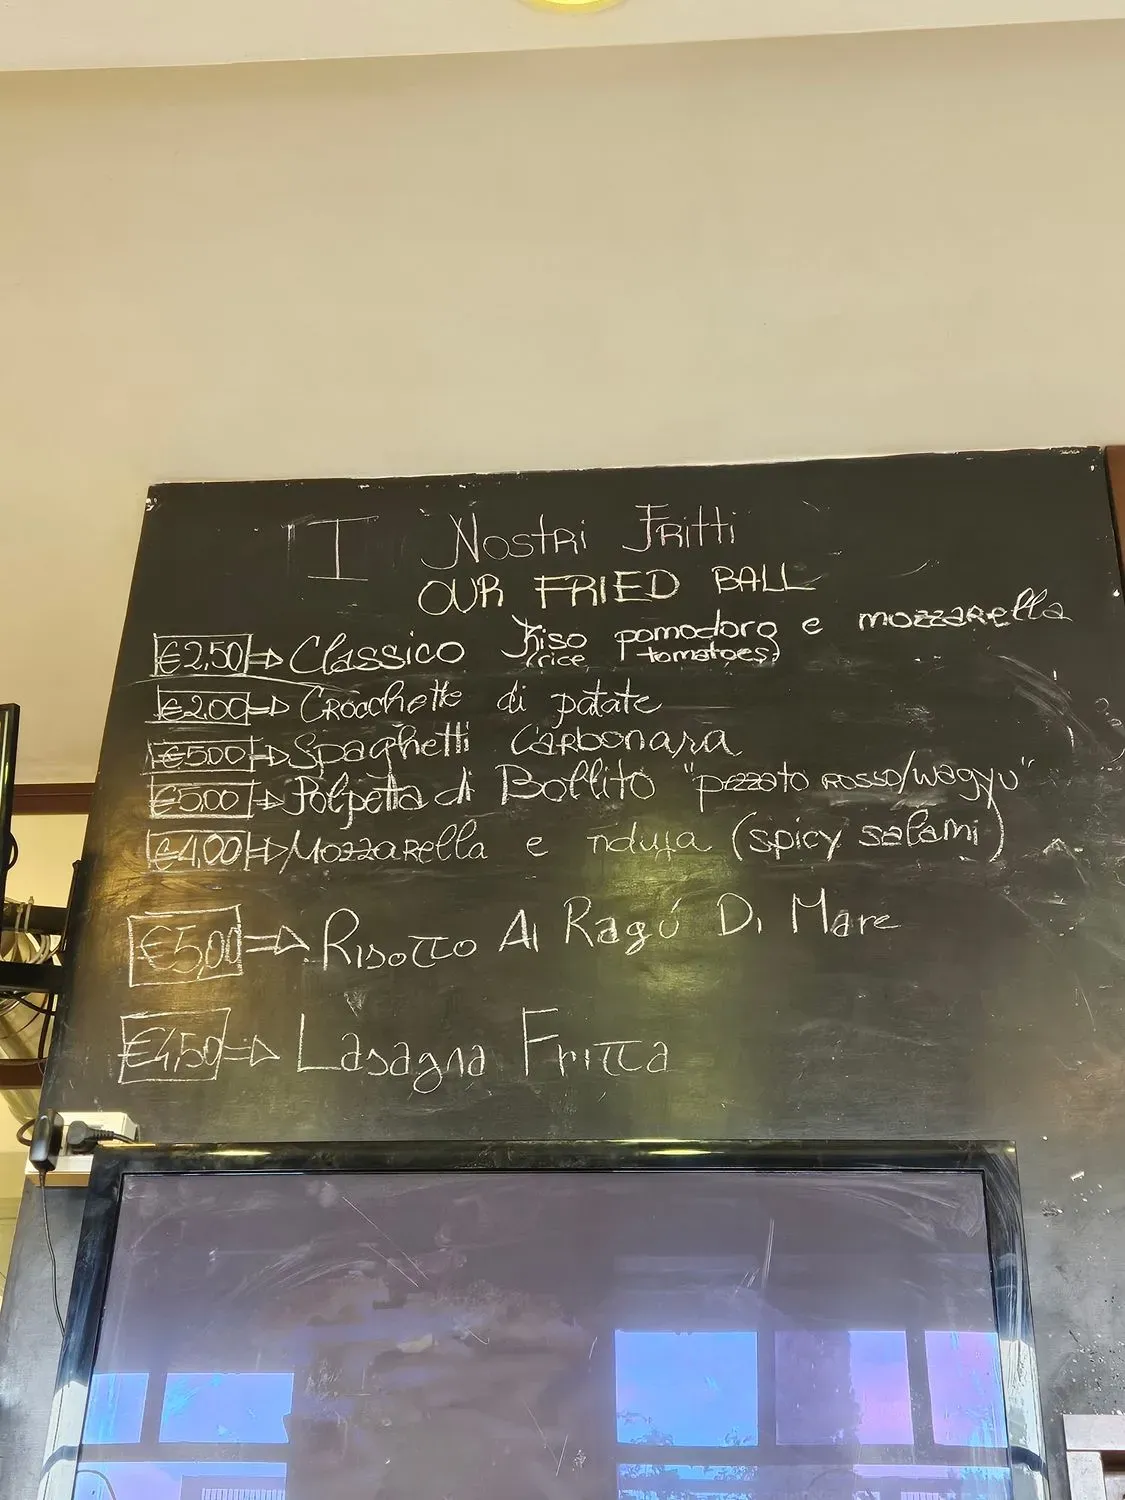 I Nostri Fritti
OUR FRIED BALL
€2,50 ⇒ Classico Riso pomodoro e mozzarella
(rice tomatoes)
€2,00 ⇒ Crocchette di patate
€5,00 ⇒ Spaghetti Carbonara
€5,00 ⇒ Polpetta di Bollito "pezzato rosso/wagyu"
€4,00 ⇒ Mozzarella e nduja (spicy salami)
€5,00 ⇒ Risotto Al Ragú Di Mare
€4,50 ⇒ Lasagna Fritta